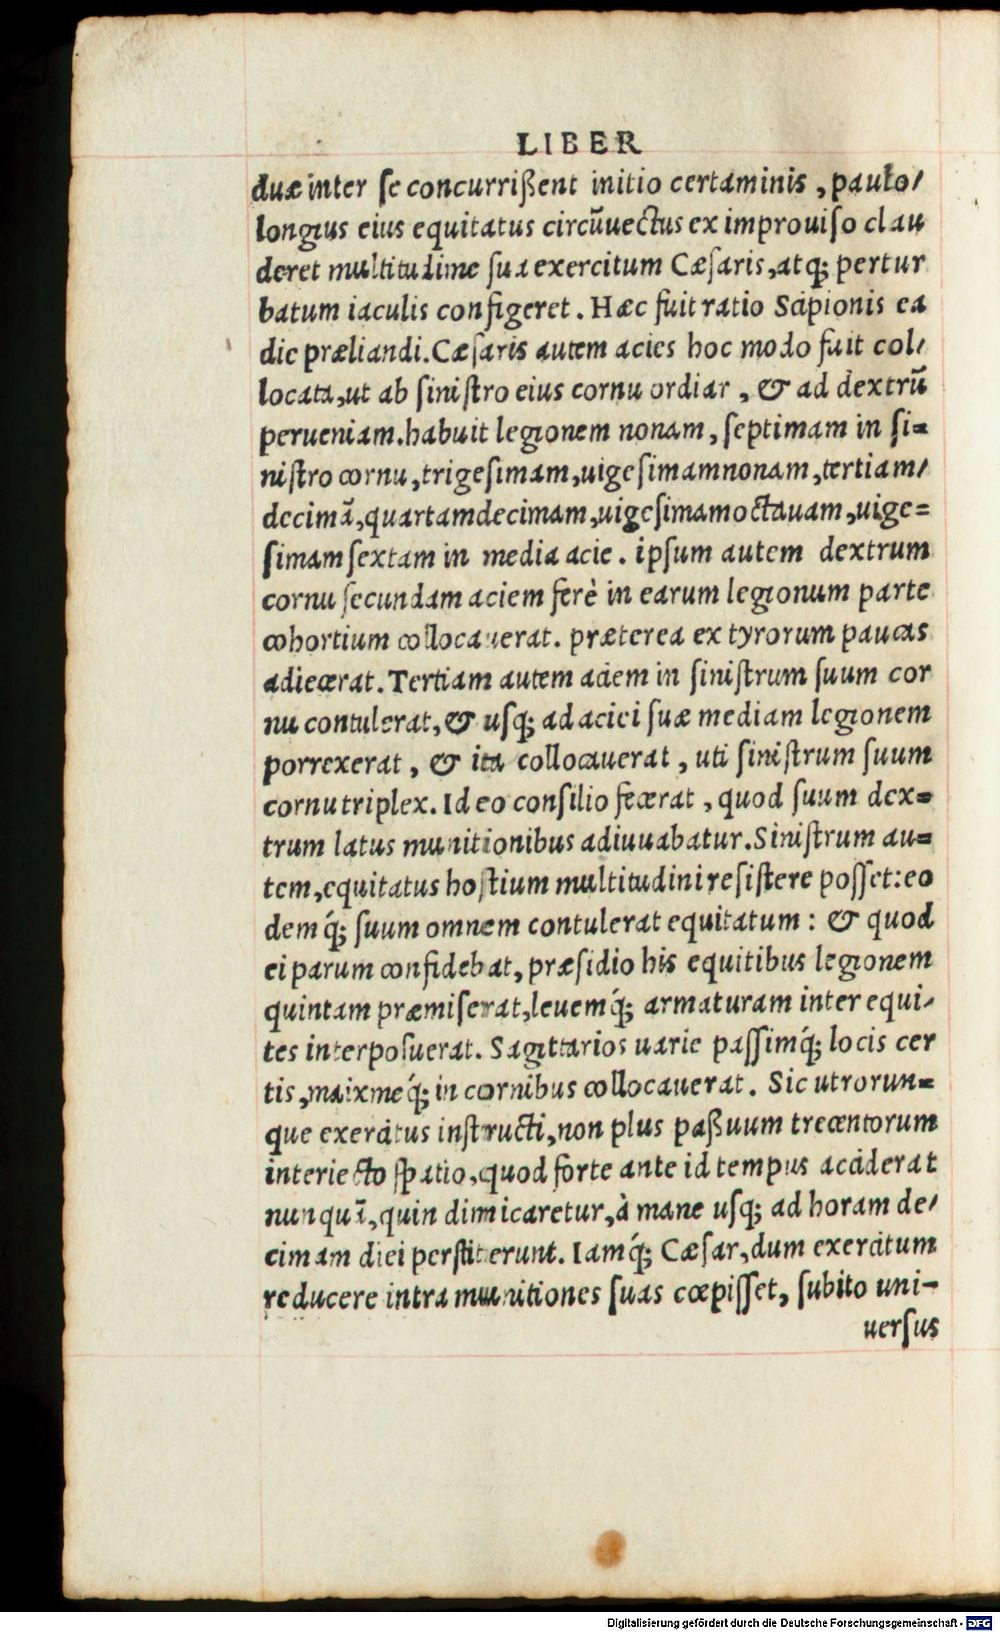 LIBER
duæ inter se concurrißent initio certaminis, paulo/
longius eius equitatus circũuectus ex improuiſo clau
deret multitudine ſua exercitum Cæſaris, atq; pertur
batum iaculis configeret. Hæc fuit ratio Scipionis ea
die præliandi. Cæſaris autem acies hoc modo fuit col/
locata, ut ab ſiniſtro eius cornu ordiar, & ad dextrũ
perueniam. habuit legionem nonam, ſeptimam in ſi=
niſtro cornu, trigeſimam, uigeſimamnonam, tertiam/
decimã, quartamdecimam, uigeſimamoctauam, uige=
ſimamſextam in media acie. ipſum autem dextrum
cornu ſecundam aciem ferè in earum legionum parte
cohortium collocauerat. præterea ex tyrorum paucas
adiecerat. Tertiam autem aciem in ſiniſtrum ſuum cor
nu contulerat, & uſq; ad aciei ſuæ mediam legionem
porrexerat, & ita collocauerat, uti ſiniſtrum ſuum
cornu triplex. Id eo conſilio fecerat, quod ſuum dex=
trum latus munitionibus adiuuabatur. Siniſtrum au=
tem, equitatus hoſtium multitudini reſiſtere poſſet: eo
demq́; ſuum omnem contulerat equitatum: & quod
ei parum confidebat, præſidio his equitibus legionem
quintam præmiſerat, leuemq́; armaturam inter equi/
tes interpoſuerat. Sagittarios uarie paſſimq́; locis cer
tis, maixmeq́; in cornibus collocauerat. Sic utrorun=
que exercitus inſtructi, non plus paßuum trecentorum
interiecto ſpatio, quod forte ante id tempus acciderat
nunquã, quin dimicaretur, à mane uſq; ad horam de/
cimam diei perſtiterunt. Iamq́; Cæſar, dum exercitum
reducere intra munitiones ſuas cœpiſſet, ſubito uni-
uerſus
Digitalisierung gefördert durch die Deutsche Forschungsgemeinschaft - DFG